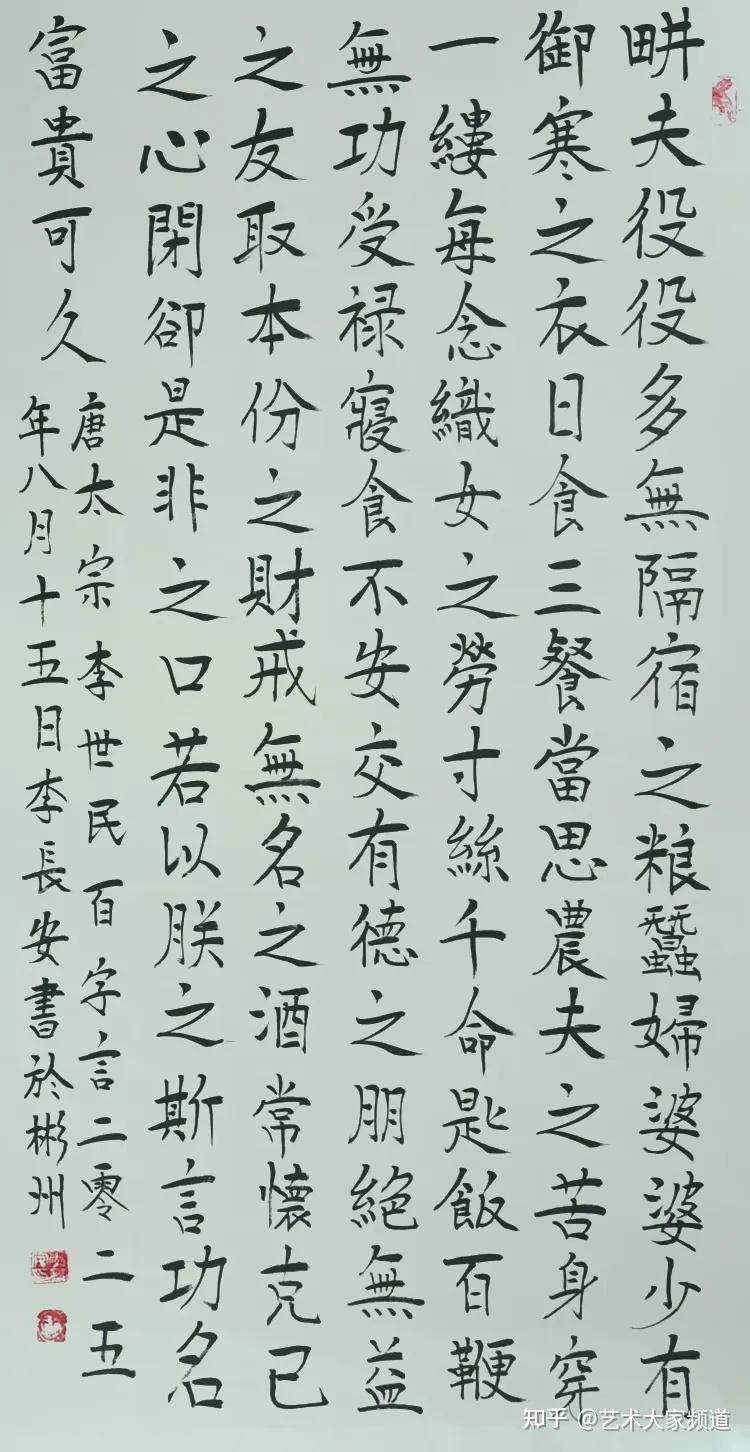 畊夫役役多無隔宿之粮蠶婦婆婆少有
御寒之衣日食三餐當思農夫之苦身穿
一縷每念織女之勞寸絲千命匙飯百鞭
無功受禄寢食不安交有德之朋絕無益
之友取本份之財戒無名之酒常懷克己
之心閉卻是非之口若以朕之斯言功名
富貴可久
唐太宗李世民百字言二零二五
年八月十五日李長安書於彬州
知乎 @艺术大家频道